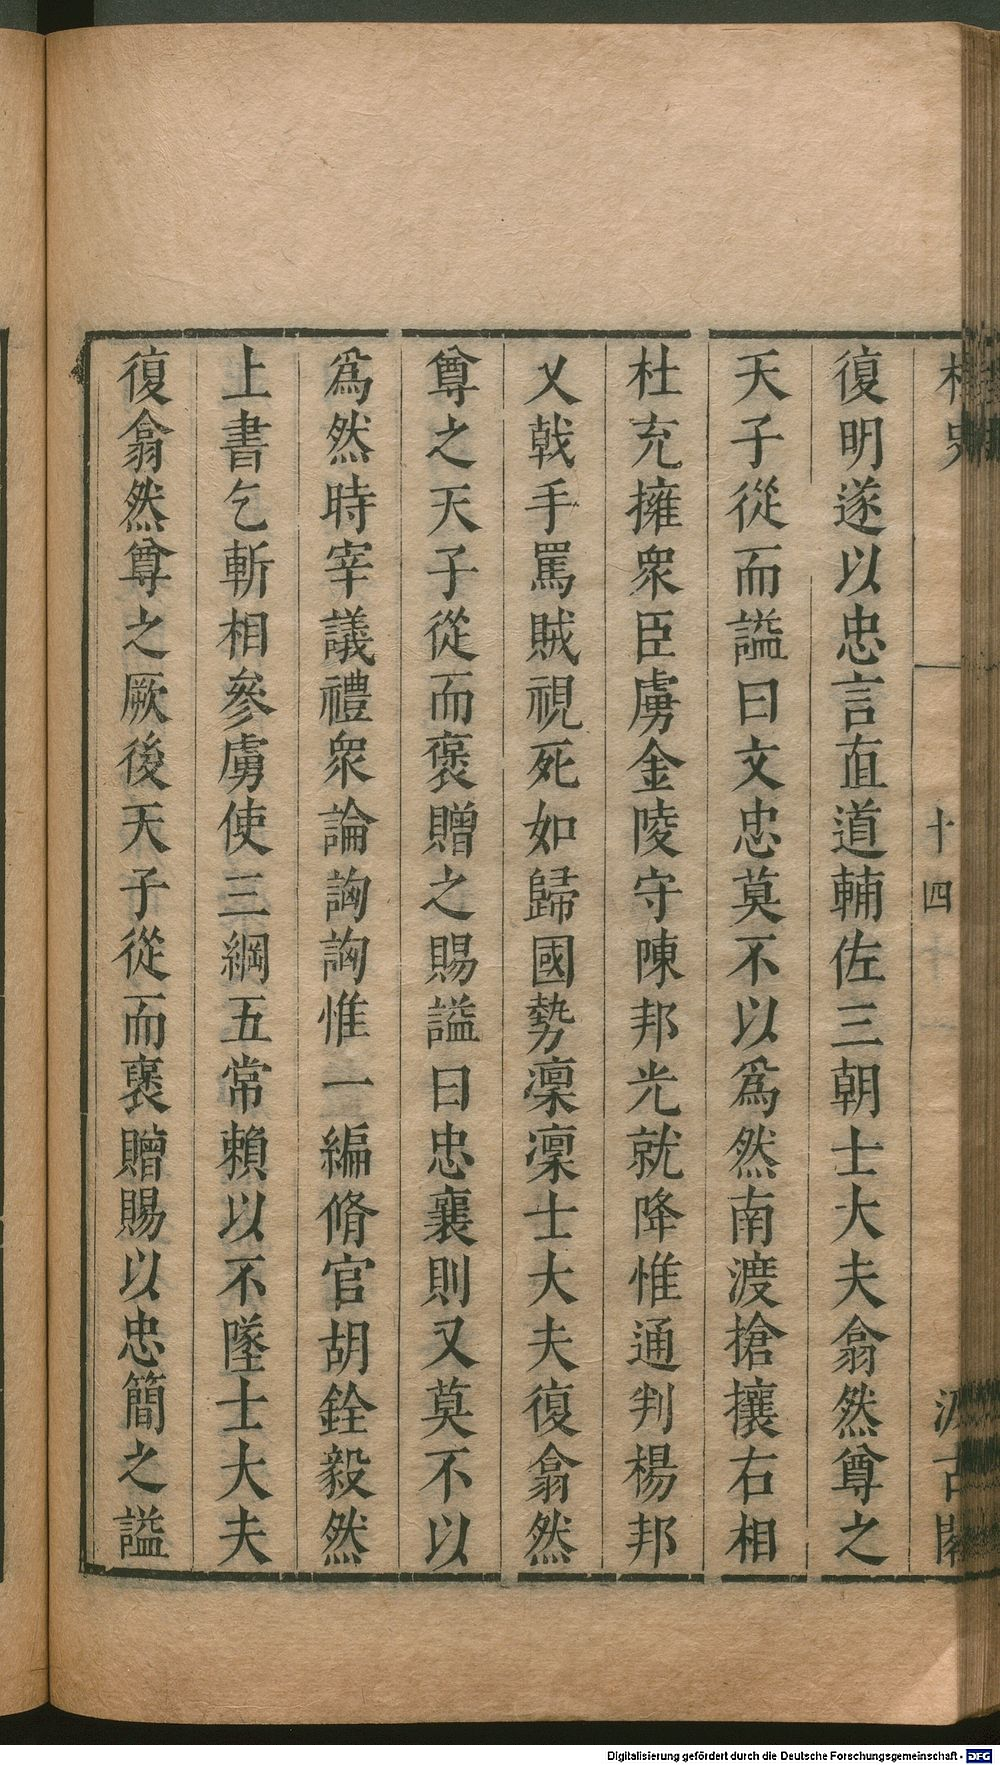 桯史
十四
汲古閣
復明遂以忠言直道輔佐三朝士大夫翕然尊之
天子從而謚曰文忠莫不以爲然南渡搶攘右相
杜充擁衆臣虜金陵守陳邦光就降惟通判楊邦
乂戟手罵賊視死如歸國勢凜凜士大夫復翕然
尊之天子從而褒贈之賜謚曰忠襄則又莫不以
爲然時宰議禮衆論訩訩惟一編脩官胡銓毅然
上書乞斬相參虜使三綱五常賴以不墜士大夫
復翕然尊之厥後天子從而褒贈賜以忠簡之謚
Digitalisierung gefördert durch die Deutsche Forschungsgemeinschaft - DFG